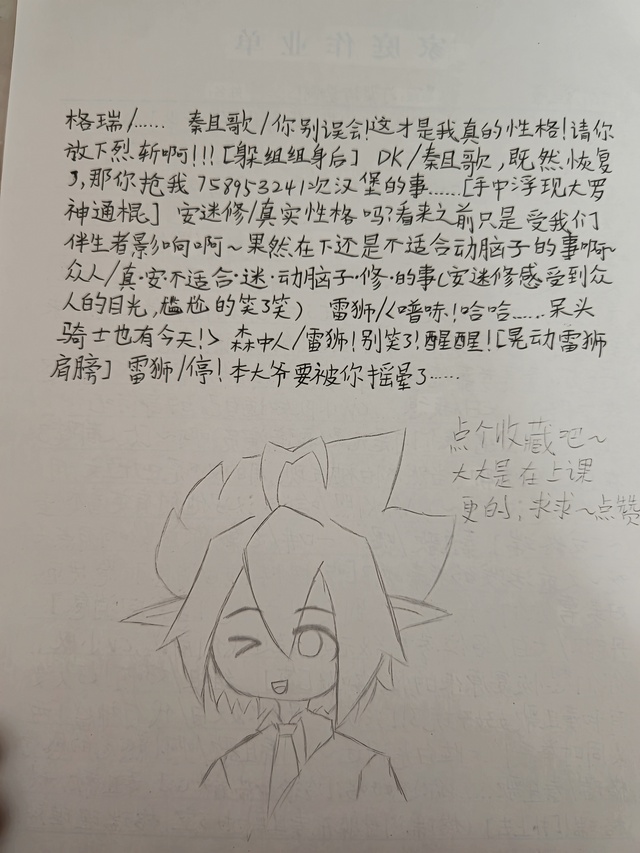 家庭作业单
格瑞/…… 秦且歌/你别误会!这才是我真的性格!请你
放下烈斩啊!!![躲组组身后] DK/秦且歌,既然恢复
了,那你抢我758953241次汉堡的事……[手中浮现大罗
神通棍] 安迷修/真实性格吗?看来之前只是受我们
伴生者影响啊~果然在下还是不适合动脑子的事啊~
众人/真·安不适合·迷·动脑子·修·的事(安迷修感受到众
人的目光,尴尬的笑了笑) 雷狮/<噗哧!哈哈……呆头
骑士也有今天!> 森中人/雷狮!别笑了!醒醒![晃动雷狮
肩膀] 雷狮/停!本大爷要被你摇晕了……
点个收藏吧~
大大是在上课
更的;求求~点赞